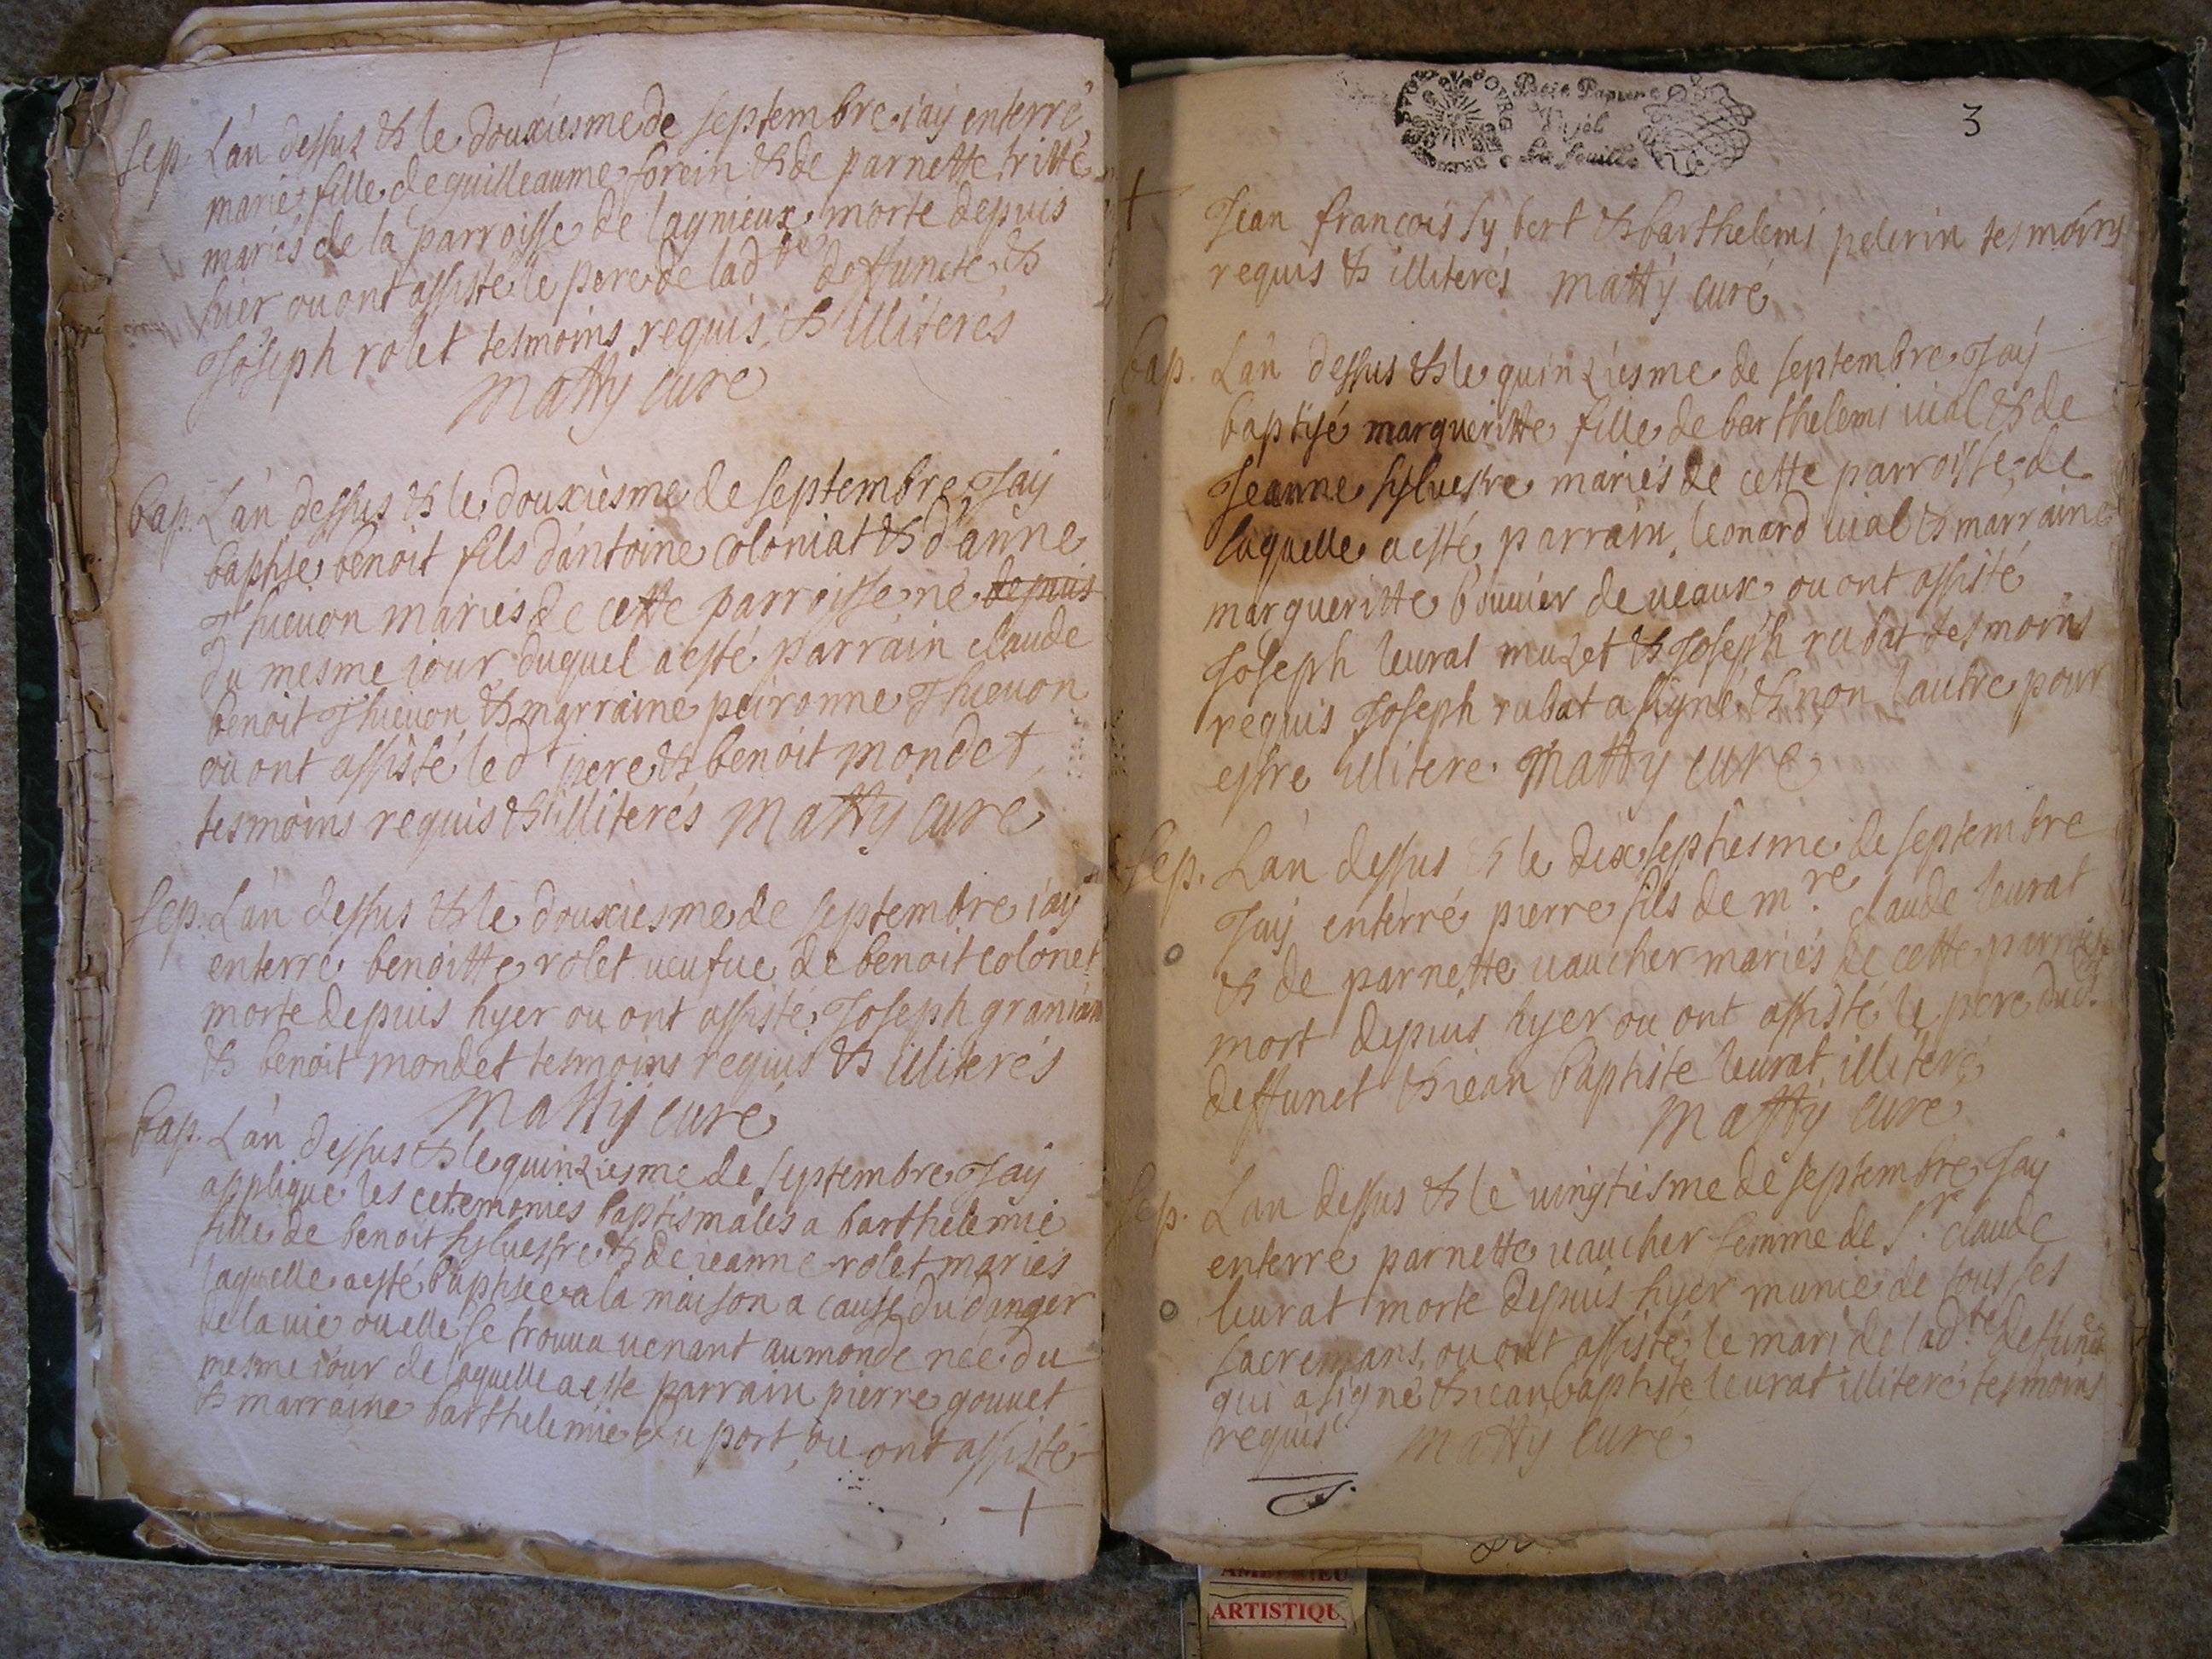 sep. L'an dessus & le douxiesme de septembre i'aÿ enterré
marie fille de guilleaume forein & de parnette tritte
mariés de la parroisse de lagnieux morte depuis
hier ou ont assisté le pere de lad.te deffuncte &
Joseph rolet tesmoins requis & illiterés
Mattÿ curé
bap. L'an dessus & le douxiesme de septembre Jaÿ
baptise benoit fils d'antoine coloniat & d'anne
Thieuon mariés de cette parroisse né depuis
du mesme iour duquel a esté parrain claude
benoit Thieuon & marraine peironne Thieuon
ou ont assisté le d.t pere & benoit mondet
tesmoins requis & illiterés Mattÿ curé
sep. L'an dessus & le douxiesme de septembre i'aÿ
enterré benoitte rolet ueufue de benoit colonet
morte depuis hyer ou ont assisté Joseph
& benoit mondet tesmoins requis & illiterés
Mattÿ curé
bap. L'an dessus & le quinziesme de septembre Jaÿ
applique les ceremonies baptismales a barthelemie
fille de benoit sylvestre & de ieanne rolet mariés
laquelle a esté baptisée a la maison a cause du danger
de la uie ou elle se trouua uenant au monde née du
mesme iour de laquelle a esté parrain pierre gouuet
& marraine barthelemie du port, ou ont assisté
+
3
Petit Papier
la feuille
+
Jean francois sybert & barthelemi pelerin tesmoins
requis & illiterés Mattÿ curé
bap. L'an dessus & le quinziesme de septembre Jaÿ
baptisé margueritte fille de barthelemi uial & de
Jeanne sylvestre mariés de cette parroisse de
laquelle a esté parrain leonard uial & marraine
margueritte bouuier de ueaux ou ont assisté
Joseph leurat muzet & Joseph rabat tesmoins
requis Joseph rabat a signé & non l'autre pour
estre illiteré Mattÿ curé
sep. L'an dessus & le dixseptiesme de septembre
Jaÿ enterré pierre fils de m.re claude leurat
& de parnette uaucher mariés de cette parroisse
mort depuis hyer ou ont assisté le pere dud.
deffunct & iean baptiste leurat illiteré
Mattÿ curé
sep. L'an dessus & le uingtiesme de septembre Jaÿ
enterré parnette uaucher femme de S.r claude
leurat morte depuis hyer munie de tous ses
sacremans, ou ont assisté le mari de lad.te deffuncte
qui a signé & iean baptiste leurat illiteré tesmoins
requis Mattÿ curé
ARTISTIQU